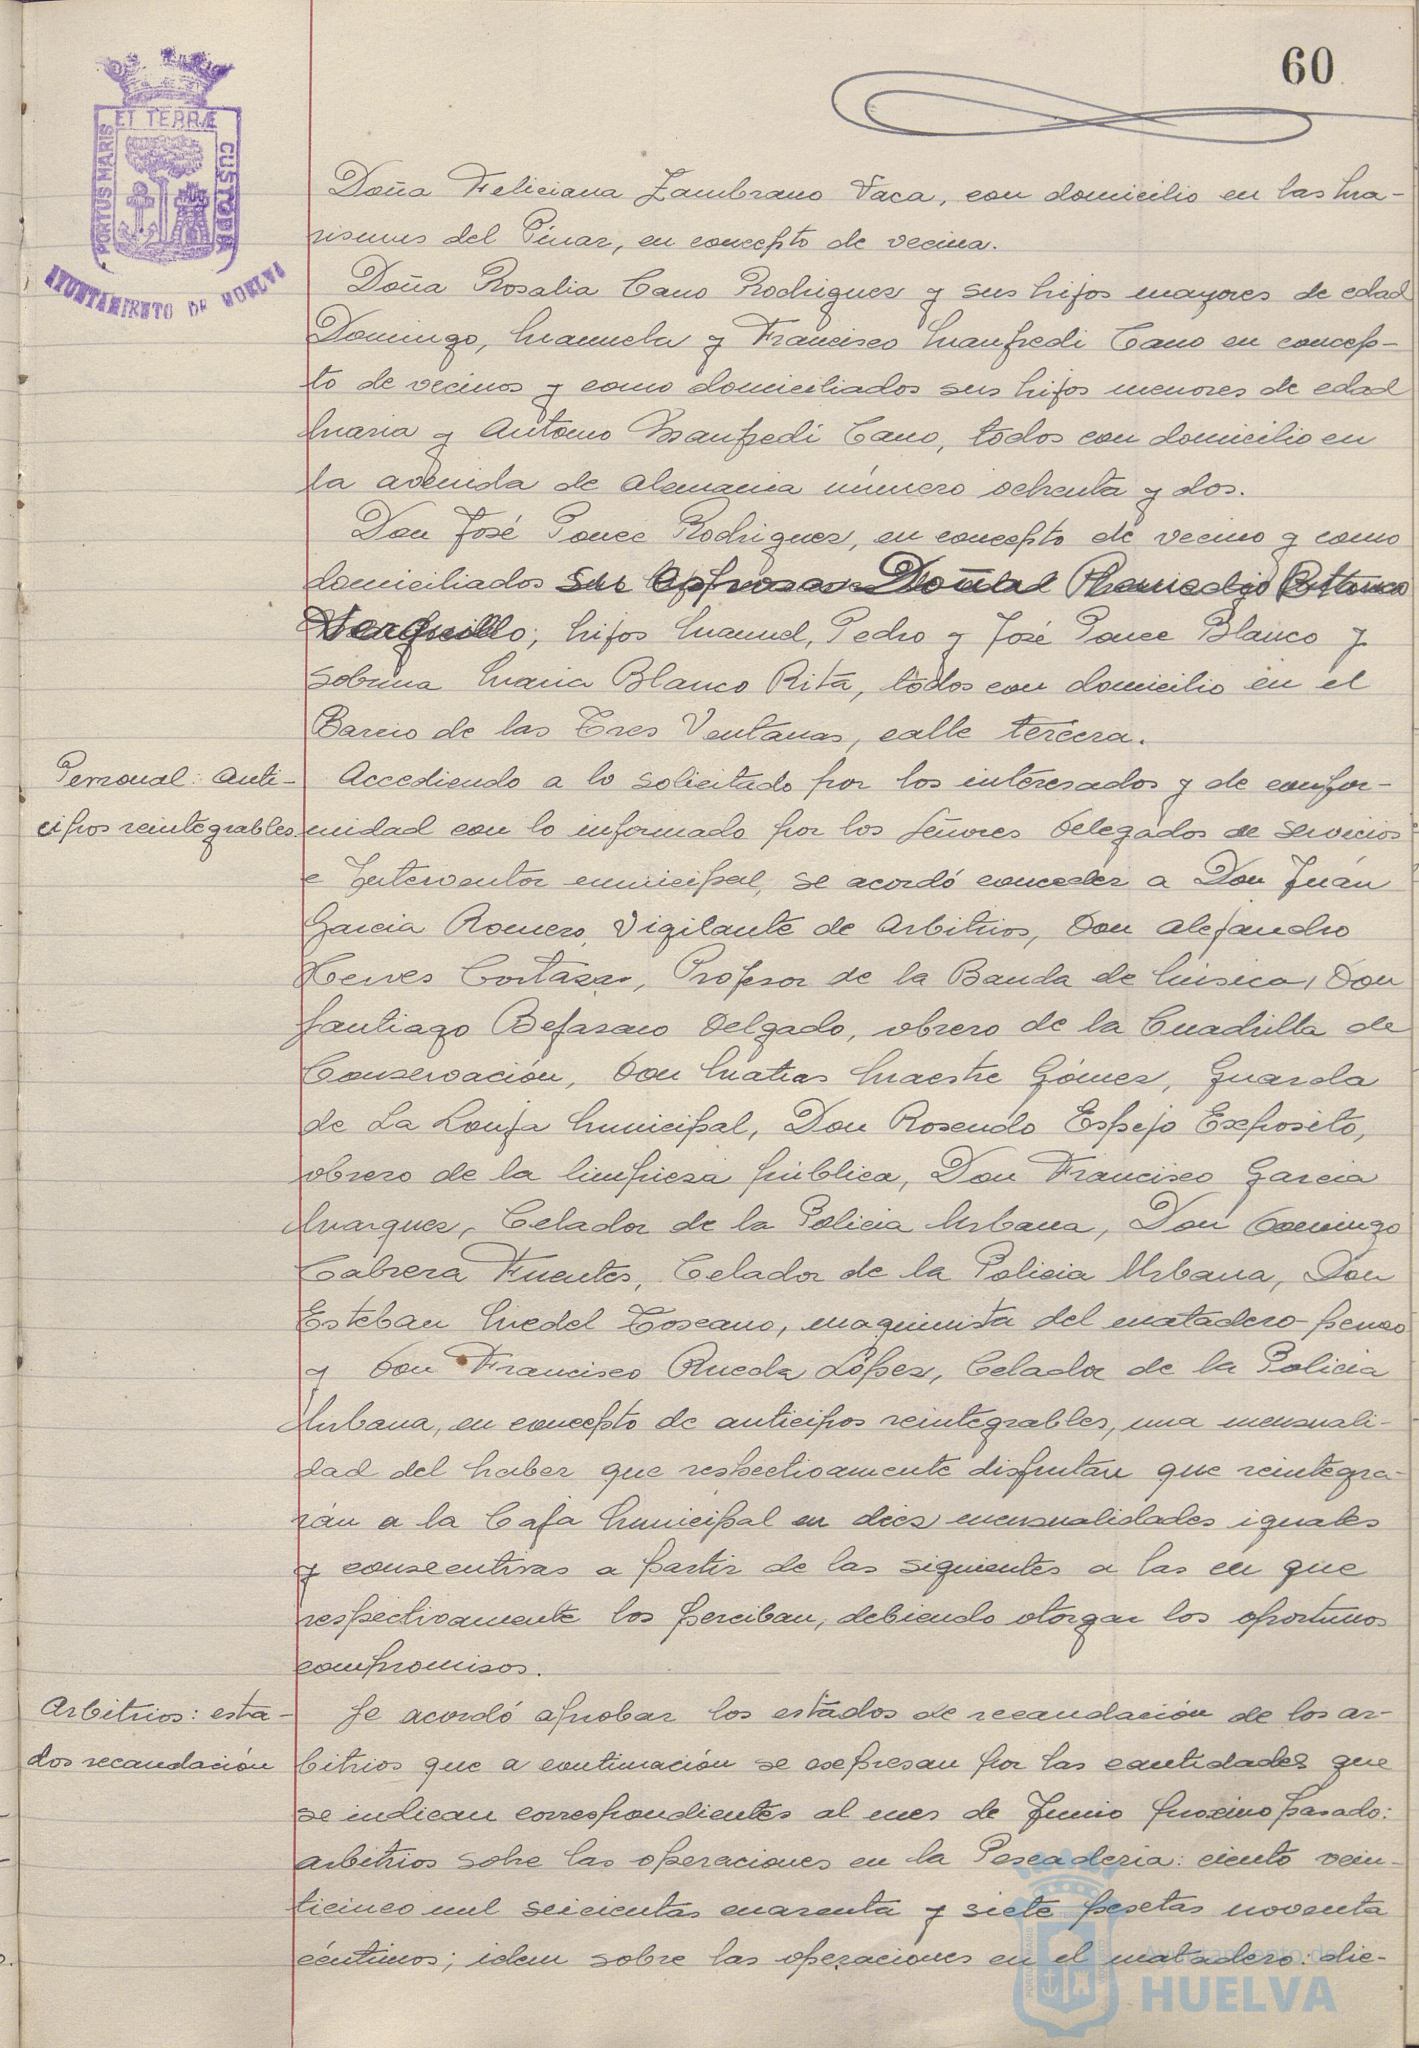 60
PORTUS MARIS ET TERRÆ CUSTODIA
AYUNTAMIENTO DE HUELVA
Doña Feliciana Zambrano Vaca, con domicilio en las Ma-
rismas del Pinar, en concepto de vecina.
Doña Rosalia Cano Rodriguez y sus hijos mayores de edad
Domingo, Manuela y Francisco Manfredi Cano en concep-
to de vecinos y como domiciliados sus hijos menores de edad
Maria y Antonio Manfredi Cano, todos con domicilio en
la avenida de Alemania número ochenta y dos.
Don José Ponce Rodriguez, en concepto de vecino y como
domiciliados su esposa Doña Blanco
hijos Manuel, Pedro y José Ponce Blanco y
sobrina Maria Blanco Rita, todos con domicilio en el
Barrio de las Tres Ventanas, calle tercera.
Personal: Anti-
cipos reintegrables
Accediendo a lo solicitado por los interesados y de confor-
midad con lo informado por los Señores Delegados de Servicios
e Interventor municipal, se acordó conceder a Don Juán
Garcia Romero, Vigilante de Arbitrios, Don Alejandro
Cortazar, Profesor de la Banda de Música, Don
Santiago Bejarano Delgado, obrero de la Cuadrilla de
Conservación, Don Matias Maestre Gómez, Guarda
de La Lonja Municipal, Don Rosendo Espejo Exposito,
obrero de la limpieza pública, Don Francisco Garcia
Marquez, Celador de la Policia Urbana, Don Domingo
Cabrera Fuentes, Celador de la Policia Urbana, Don
Esteban Toscano, maquinista del matadero
y Don Francisco Rueda López, Celador de la Policia
Urbana, en concepto de anticipos reintegrables, una mensuali-
dad del haber que respectivamente disfrutan que reintegra-
rán a la Caja Municipal en diez mensualidades iguales
y consecutivas a partir de las siguientes a las en que
respectivamente los perciban, debiendo otorgar los oportunos
compromisos.
Arbitrios: esta-
dos recaudación
Se acordó aprobar los estados de recaudación de los ar-
bitrios que a continuación se expresan por las cantidades que
se indican correspondientes al mes de Junio proximo pasado:
arbitrios sobre las operaciones en la Pescaderia: ciento vein-
ticinco mil seicientas cuarenta y siete pesetas noventa
céntimos; idem sobre las operaciones en el matadero: die-
Ayuntamiento de
HUELVA